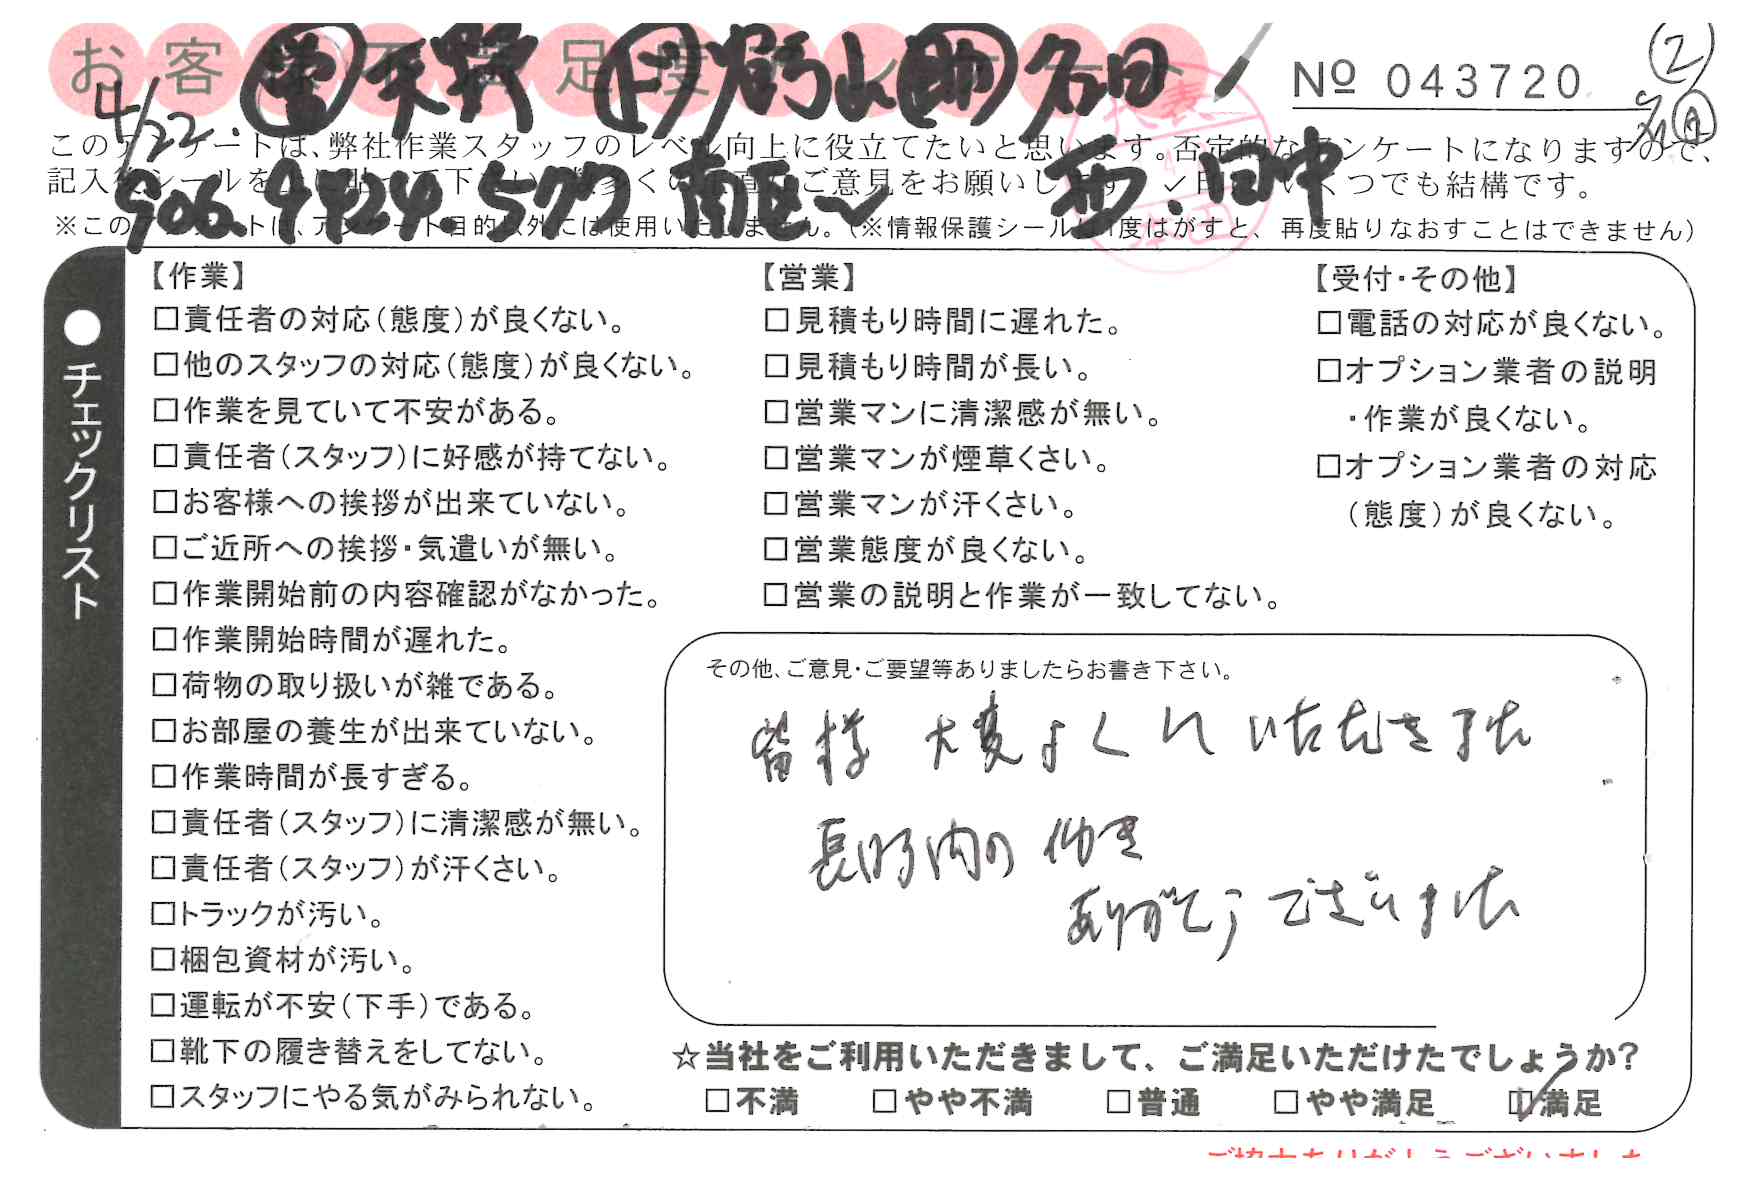 お客様不満足度アンケート
Nº 043720
②
4/22. 天野
このアンケートは、弊社作業スタッフのレベル向上に役立てたいと思います。否定的なアンケートになりますので、
906 9424 577 南区〜 田中
※このアンケートは、アンケート目的以外には使用いたしません。（※情報保護シールは1度はがすと、再度貼りなおすことはできません）
●チェックリスト
【作業】
□責任者の対応（態度）が良くない。
□他のスタッフの対応（態度）が良くない。
□作業を見ていて不安がある。
□責任者（スタッフ）に好感が持てない。
□お客様への挨拶が出来ていない。
□ご近所への挨拶・気遣いが無い。
□作業開始前の内容確認がなかった。
□作業開始時間が遅れた。
□荷物の取り扱いが雑である。
□お部屋の養生が出来ていない。
□作業時間が長すぎる。
□責任者（スタッフ）に清潔感が無い。
□責任者（スタッフ）が汗くさい。
□トラックが汚い。
□梱包資材が汚い。
□運転が不安（下手）である。
□靴下の履き替えをしてない。
□スタッフにやる気がみられない。
【営業】
□見積もり時間に遅れた。
□見積もり時間が長い。
□営業マンに清潔感が無い。
□営業マンが煙草くさい。
□営業マンが汗くさい。
□営業態度が良くない。
□営業の説明と作業が一致してない。
【受付・その他】
□電話の対応が良くない。
□オプション業者の説明
・作業が良くない。
□オプション業者の対応
（態度）が良くない。
その他、ご意見・ご要望等ありましたらお書き下さい。
皆様 大変よくしていただきました
長時間の働き
ありがとうございました
☆当社をご利用いただきまして、ご満足いただけたでしょうか？
□不満 □やや不満 □普通 □やや満足 ☑満足
ご協力ありがとうございました